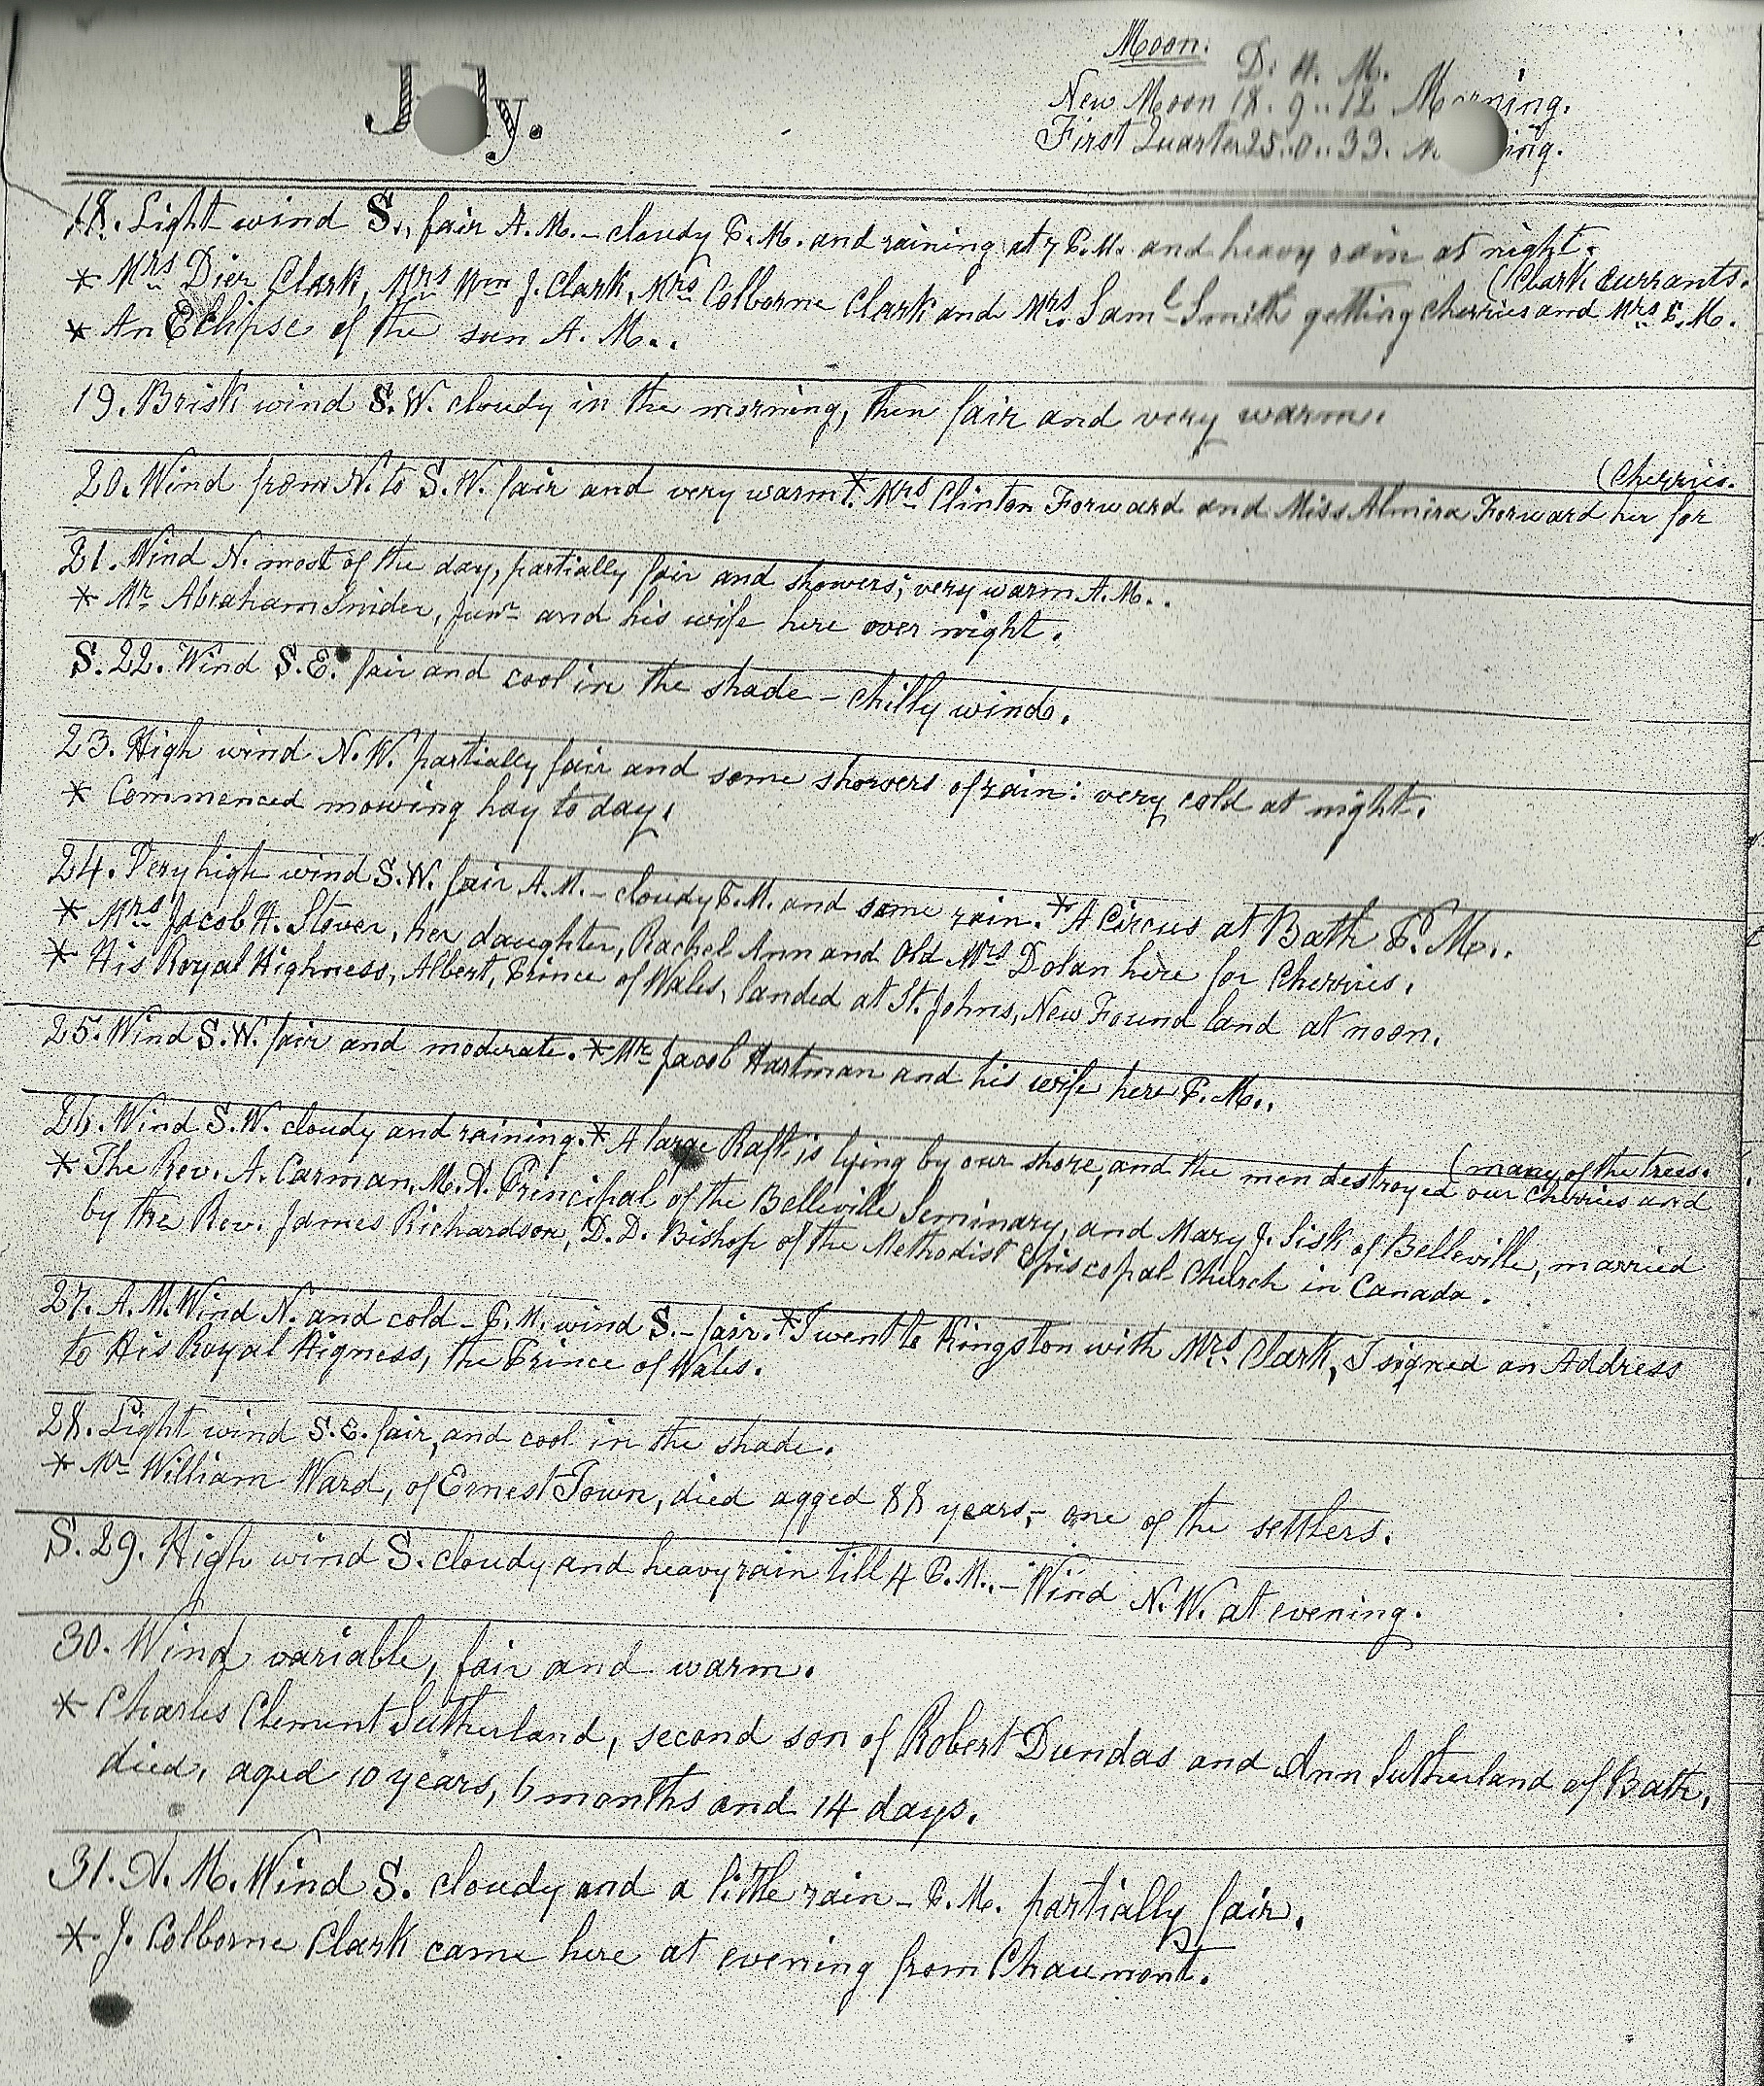 Moon.
July.
D. H. M.
New Moon 18. 9..12 Morning.
First Quarter 25..0..33. Morning.
18. Light wind S., fair A.M. - cloudy P.M. and raining at 7 P.M. and heavy rain at night.
(Clark currants.
* Mrs Dier Clark, Mrs Wm J. Clark, Mrs Colborne Clark and Mrs Saml Smith getting cherries and Mrs E. M.
* An Eclipse of the sun A.M..
19. Brisk wind S.W. cloudy in the morning, then fair and very warm.
(Cherries.
20. Wind from N. to S.W. fair and very warm. * Mrs Clinton Forward and Miss Almira Forward her for
21. Wind N. most of the day, partially fair and showers; very warm A.M..
* Mr Abraham Snider, Junr and his wife here over night.
S. 22. Wind S.E. fair and cool in the shade - chilly wind.
23. High wind N.W. partially fair and some showers of rain: very cold at night.
* Commenced mowing hay to day.
24. Very high wind S.W. fair A.M. - cloudy P.M. and some rain. * A Circus at Bath P.M..
* Mrs Jacob H. Stover, her daughter, Rachel Ann and Old Mrs Dolan here for Cherries.
* His Royal Highness, Albert, Prince of Wales, landed at St. Johns, New Found land at noon.
25. Wind S.W. fair and moderate. * Mr Jacob Hartman and his wife here P.M..
26. Wind S.W. cloudy and raining. * A large Raft is lying by our shore, and the men destroyed our cherries and
(many of the trees.
* The Rev. A. Carman, M.A. Principal of the Belleville Seminary, and Mary J. Sisk of Belleville, married
by the Rev. James Richardson, D.D. Bishop of the Methodist Episcopal Church in Canada.
27. A.M. Wind N. and cold - P.M. wind S. - fair. * I went to Kingston with Mrs Clark, I signed an Address
to His Royal Higness, the Prince of Wales.
28. Light wind S.E. fair, and cool in the shade.
* Mr William Ward, of Ernest Town, died agged 88 years, - one of the settlers.
S. 29. High wind S. cloudy and heavy rain till 4 P.M.. - Wind N.W. at evening.
30. Wind variable, fair and warm.
* Charles Clement Sutherland, second son of Robert Dundas and Ann Sutherland of Bath,
died, aged 10 years, 6 months and 14 days.
31. A.M. Wind S. cloudy and a little rain - P.M. partially fair.
* J. Colborne Clark came here at evening from Chaumont.